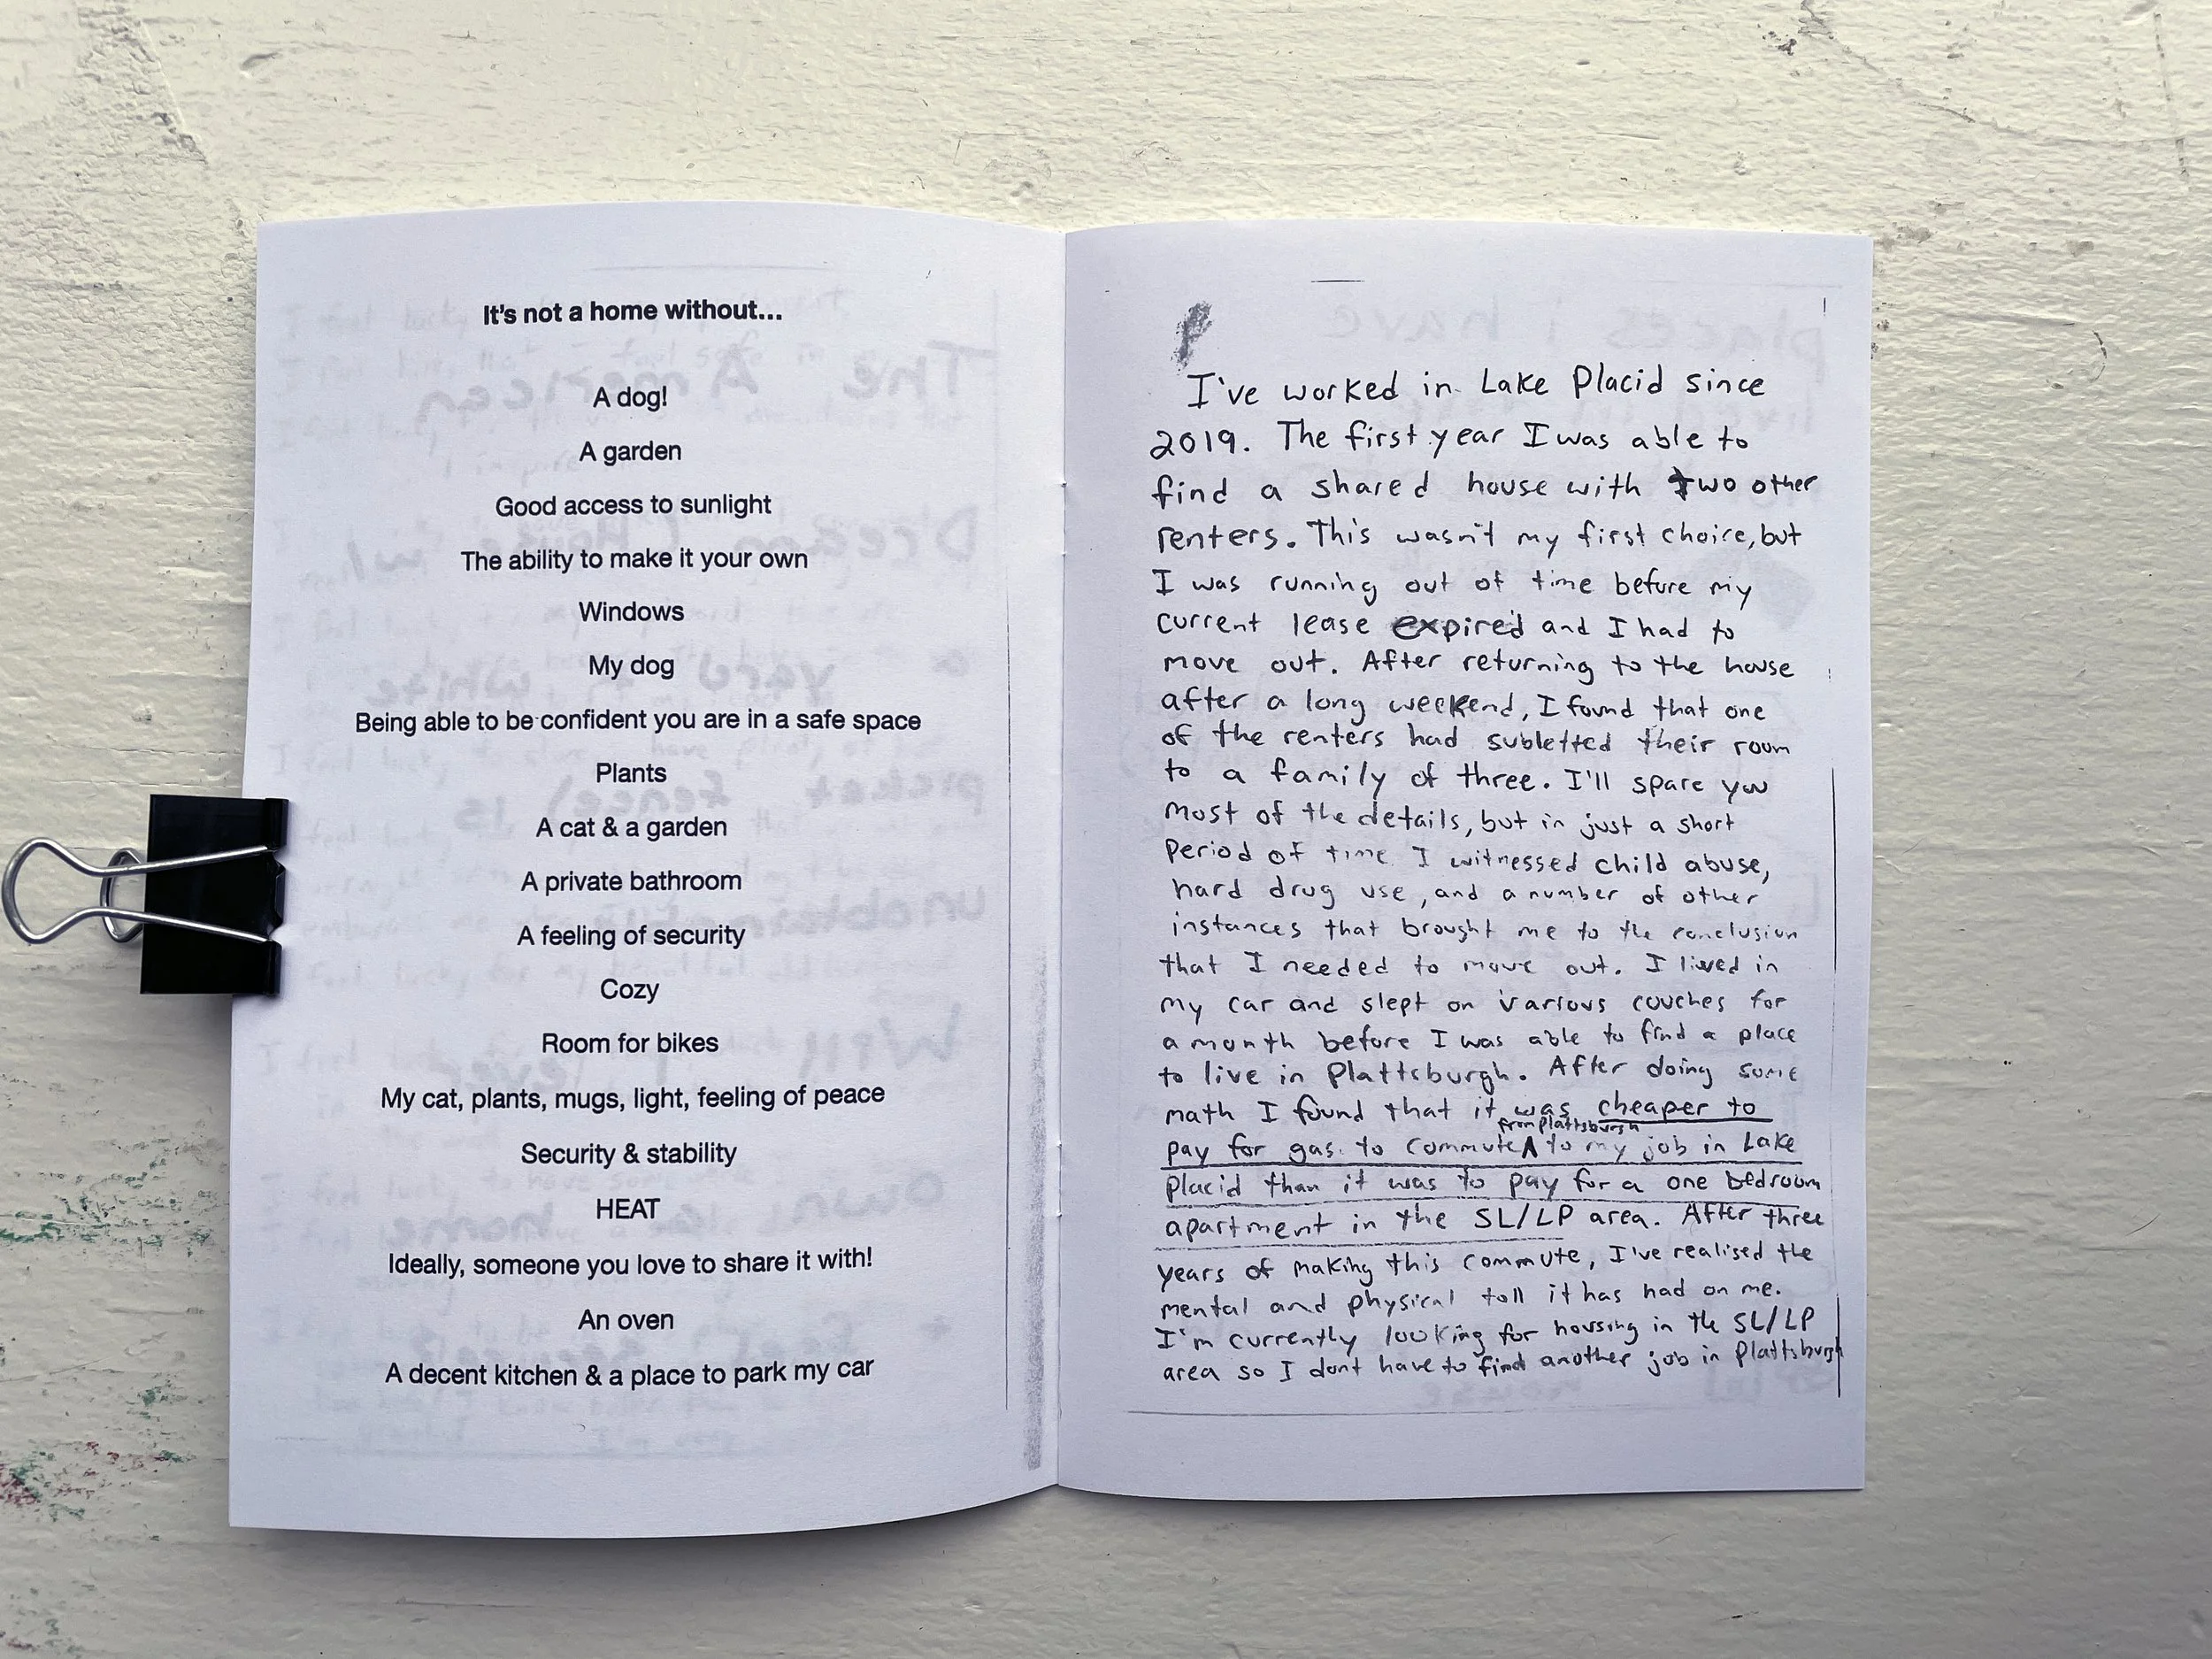 It's not a home without...
A dog!
A garden
Good access to sunlight
The ability to make it your own
Windows
My dog
Being able to be confident you are in a safe space
Plants
A cat & a garden
A private bathroom
A feeling of security
Cozy
Room for bikes
My cat, plants, mugs, light, feeling of peace
Security & stability
HEAT
Ideally, someone you love to share it with!
An oven
A decent kitchen & a place to park my car
I've worked in Lake Placid since
2019. The first year I was able to
find a shared house with two other
renters. This wasn't my first choice, but
I was running out of time before my
current lease expired and I had to
move out. After returning to the house
after a long weekend, I found that one
of the renters had subletted their room
to a family of three. I'll spare you
most of the details, but in just a short
period of time I witnessed child abuse,
hard drug use, and a number of other
instances that brought me to the conclusion
that I needed to move out. I lived in
my car and slept on various couches for
a month before I was able to find a place
to live in Plattsburgh. After doing some
math I found that it was cheaper to
from Plattsburgh
pay for gas to commute ^ to my job in Lake
Placid than it was to pay for a one bedroom
apartment in the SL/LP area. After three
years of making this commute, I've realised the
mental and physical toll it has had on me.
I'm currently looking for housing in the SL/LP
area so I dont have to find another job in Plattsburgh